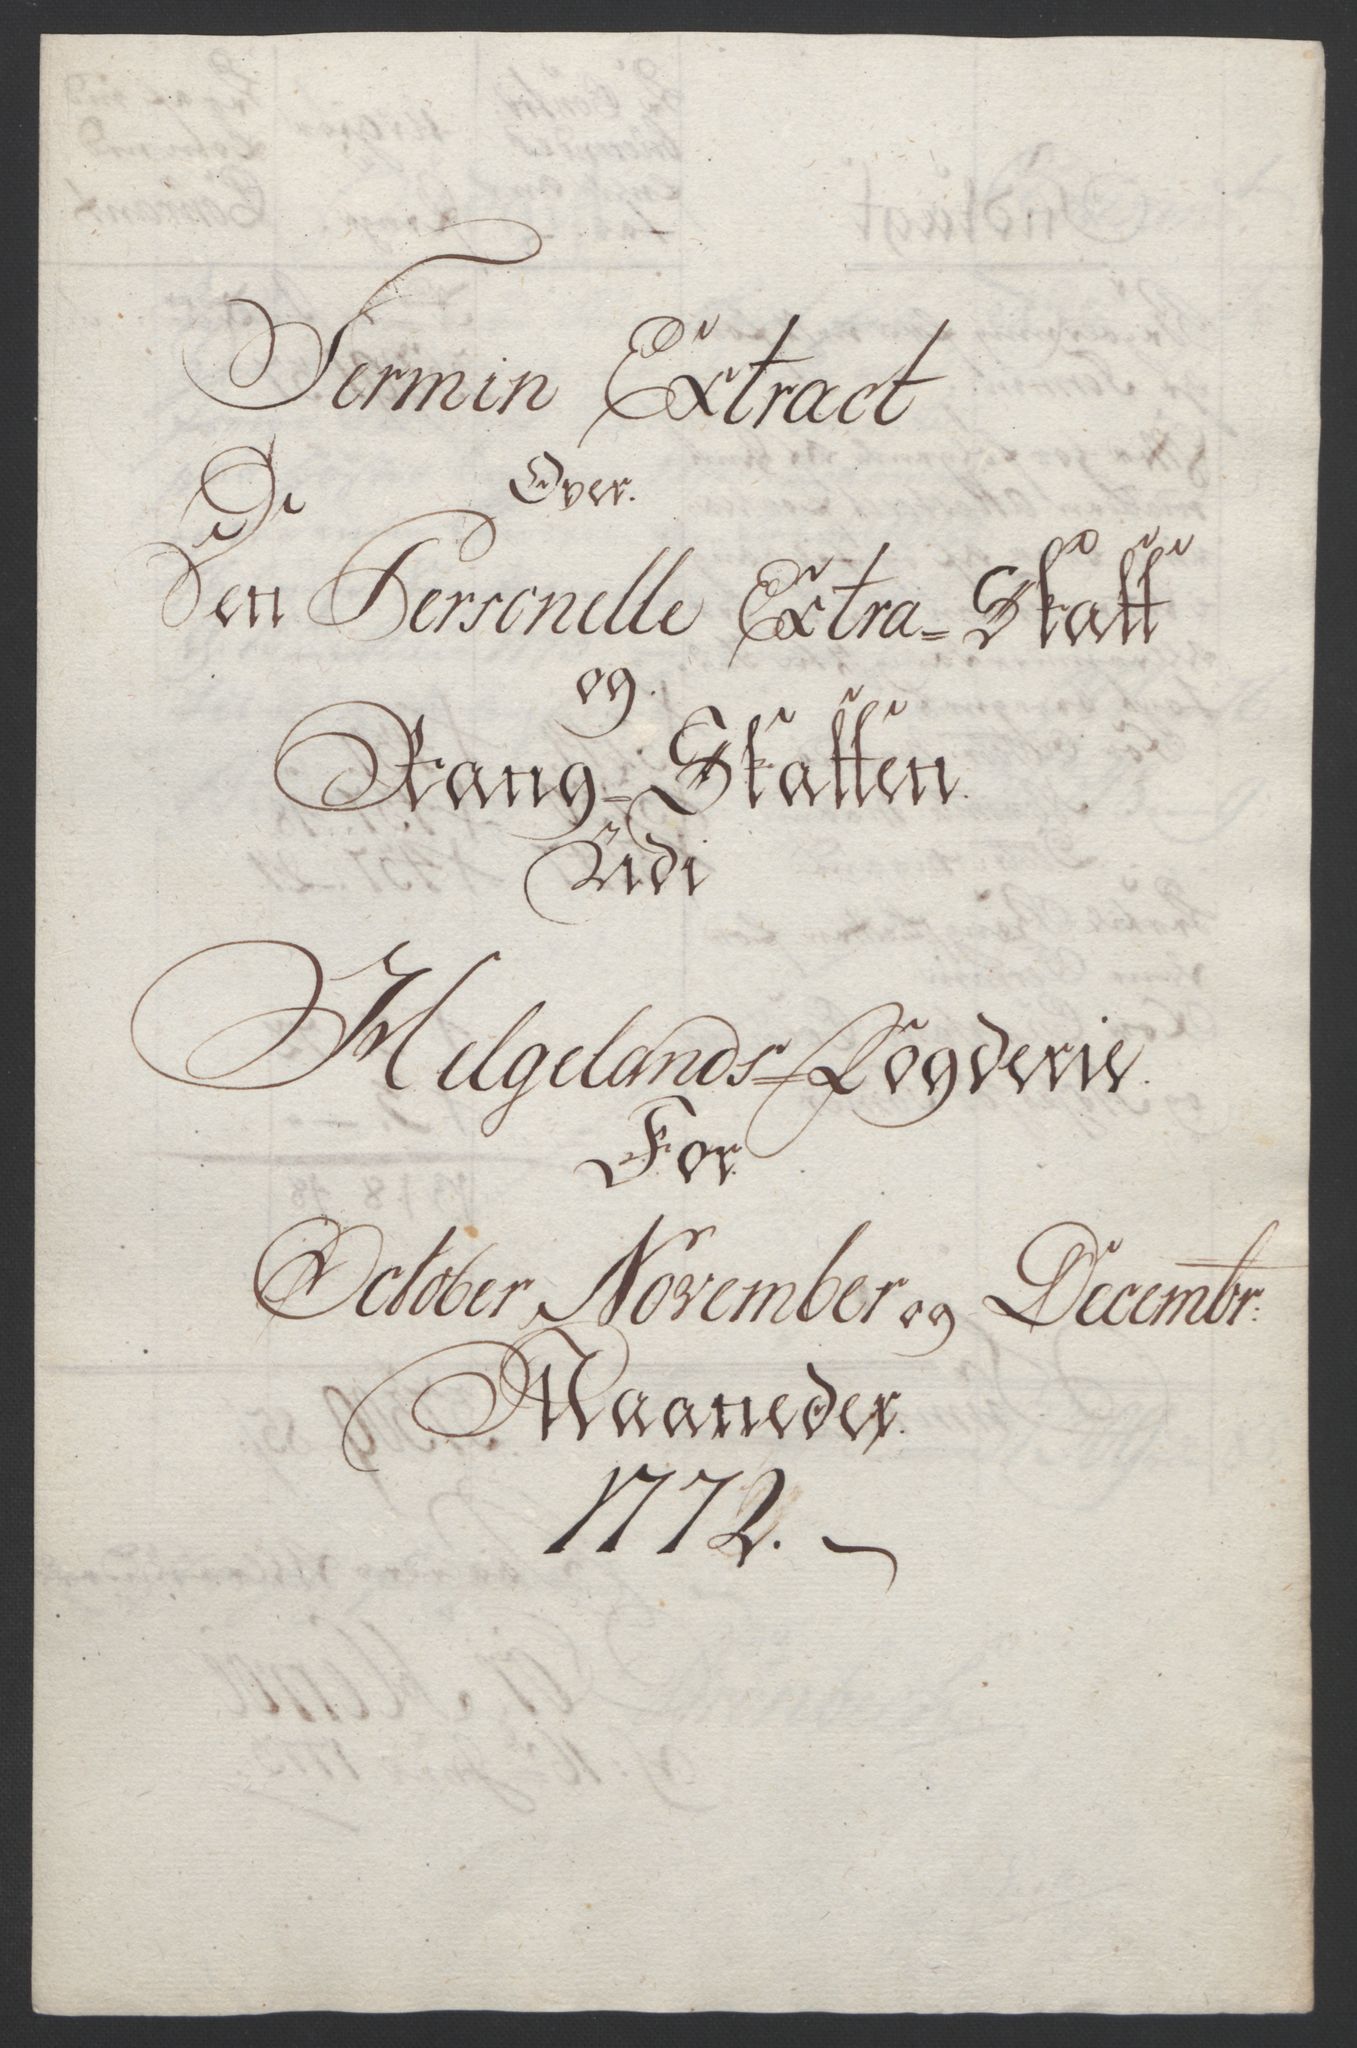 Termin Extract
Over.
Den Personelle Extra=Skatt
og.
Rang=Skatten.
Udi
Helgelands=Fogderie.
For
October, November og Decembr:
Maaneder.
1772.